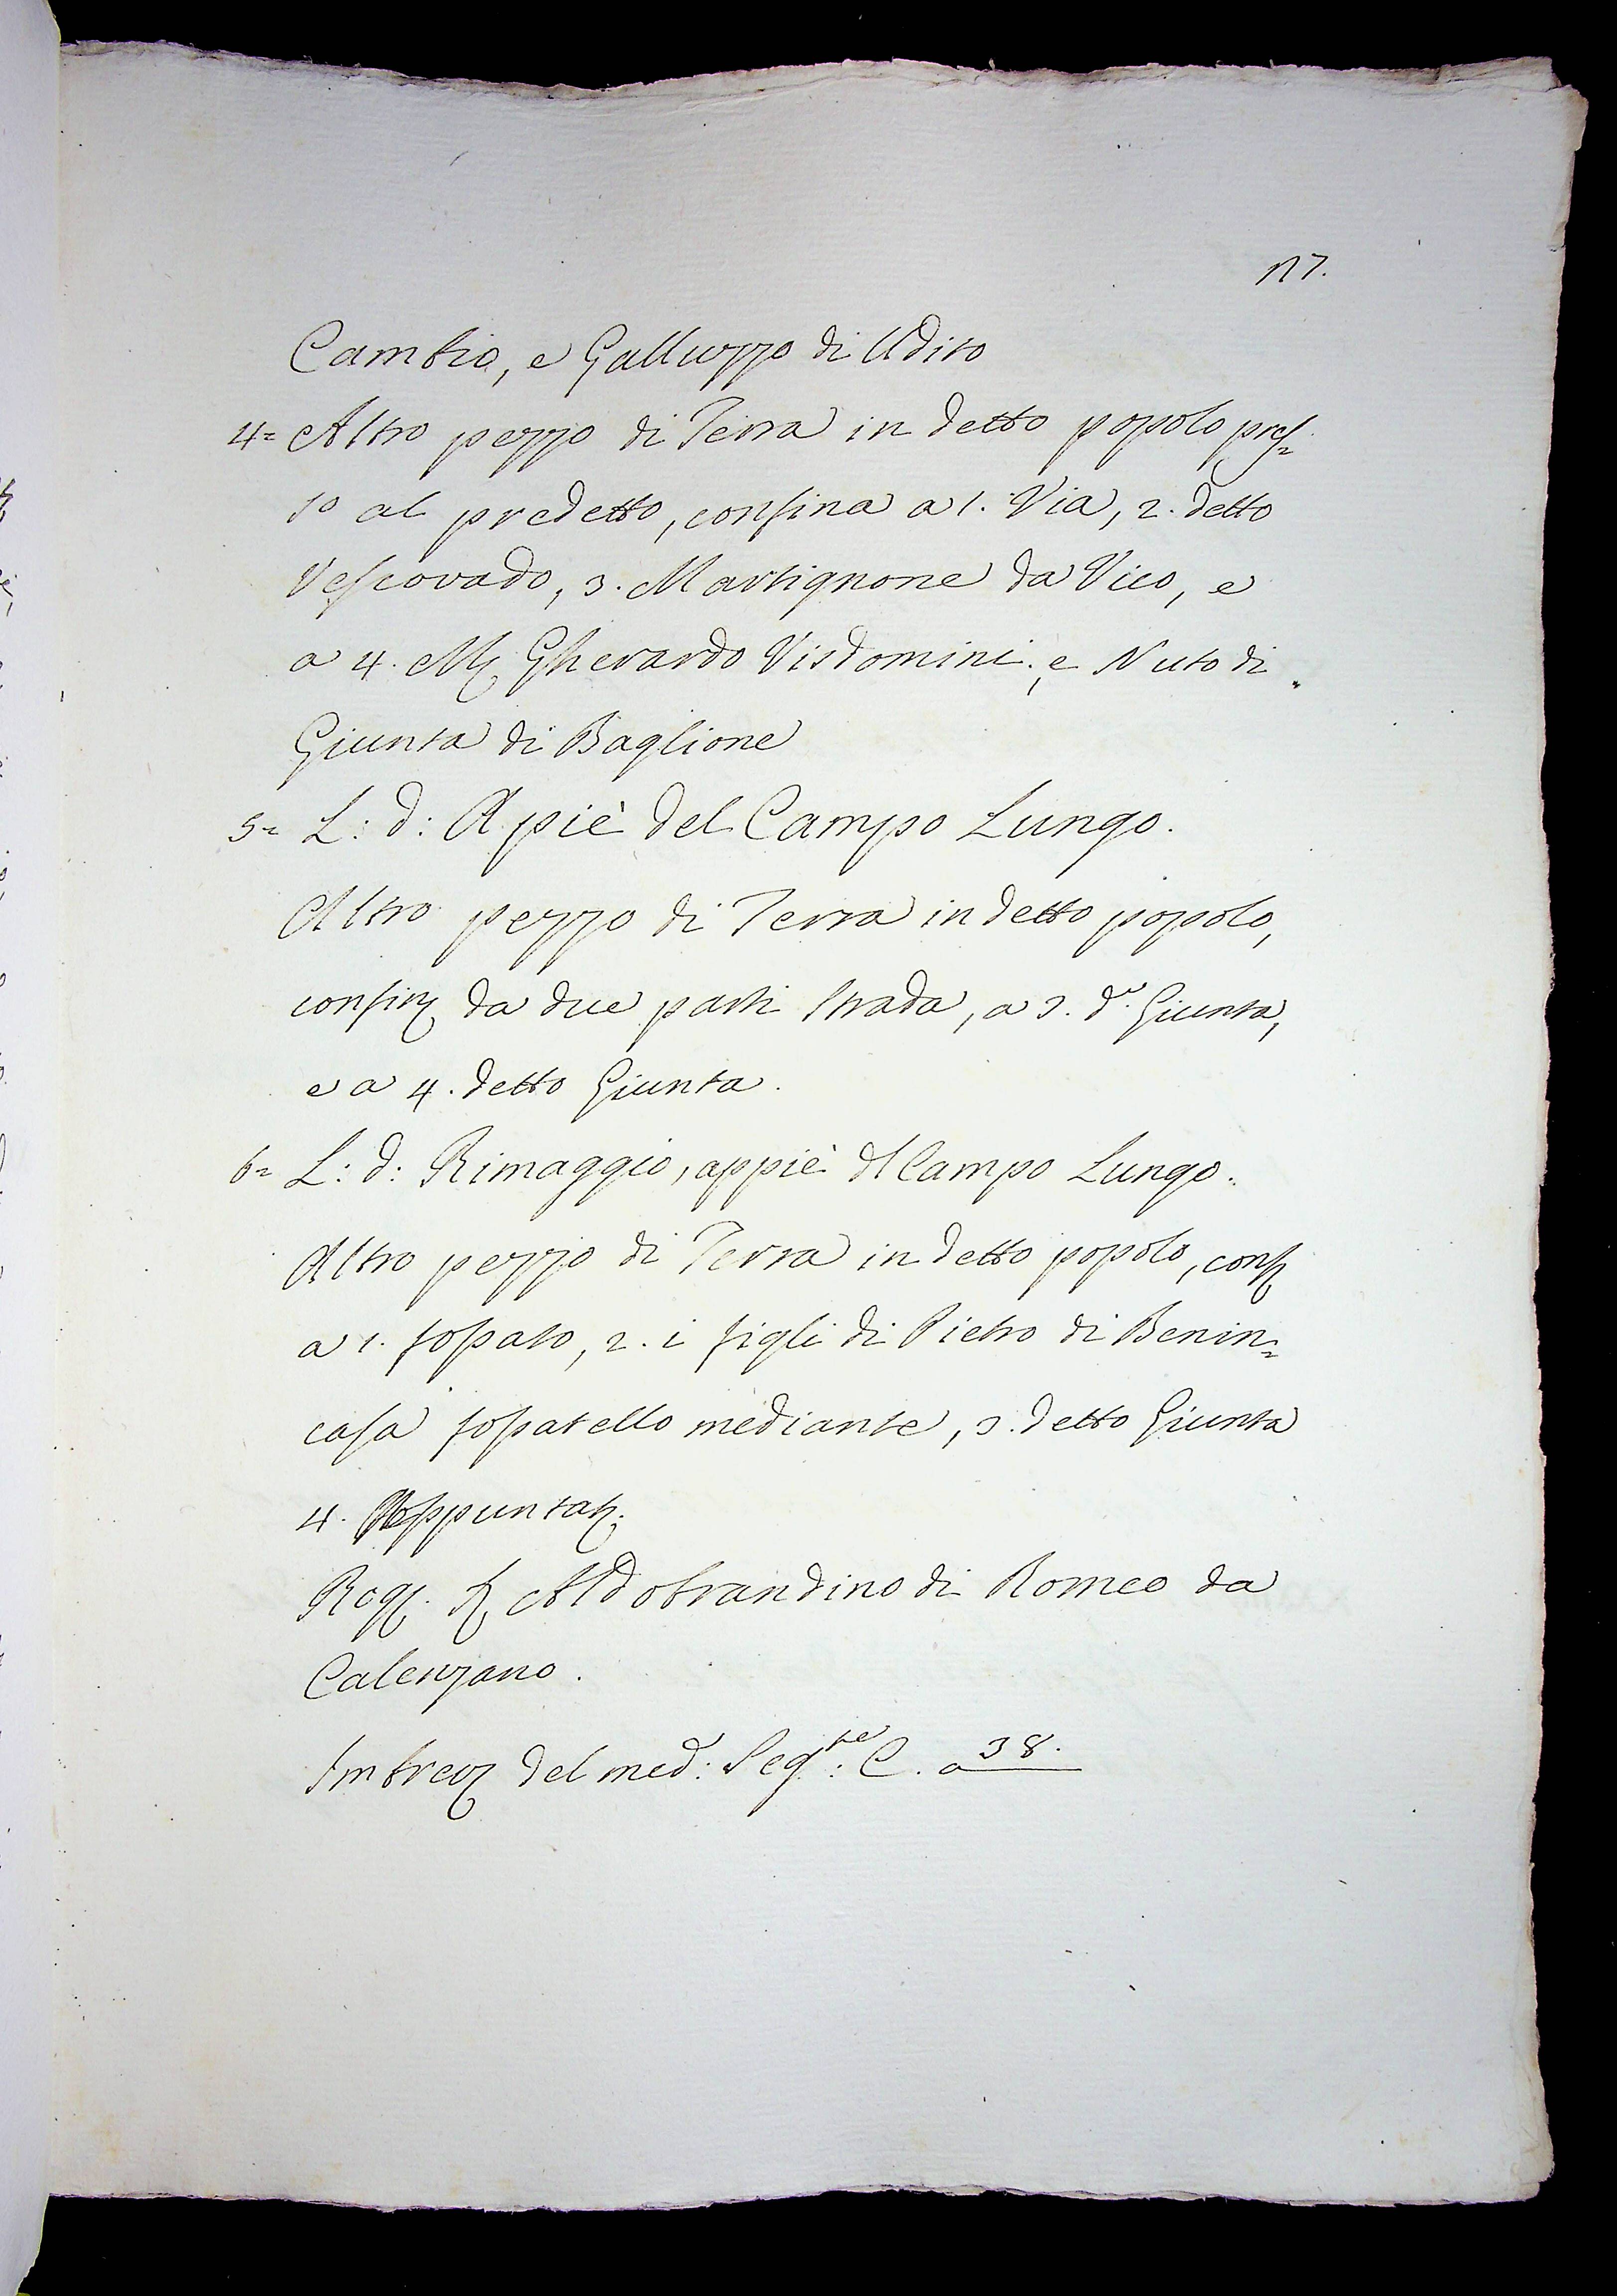 117.
Cambio, e Galluzzo di Udito
4= Altro pezzo di Terra in detto popolo pres=
so al predetto, confina a 1. Via, 2. detto
Vescovado, 3. Martignone da Vico, e
a 4. M. Gherardo Visdomini, e Nuto di
Giunta di Baglione
5= L: d: A piè del Campo Lungo.
Altro pezzo di Terra in detto popolo,
confin. da due parti strada, a 3. d.º Giunta,
e a 4. detto Giunta.
6= L: d: Rimaggio, appiè dl Campo Lungo.
Altro pezzo di Terra in detto popolo, conf.
a 1. fossato, 2. i figli di Pietro di Benin=
casa fossatello mediante, 3. detto Giunta
4.
Rog. S. Aldobrandino di Romeo da
Calenzano.
Imbrev. del med: Seg.te: C. a 38.